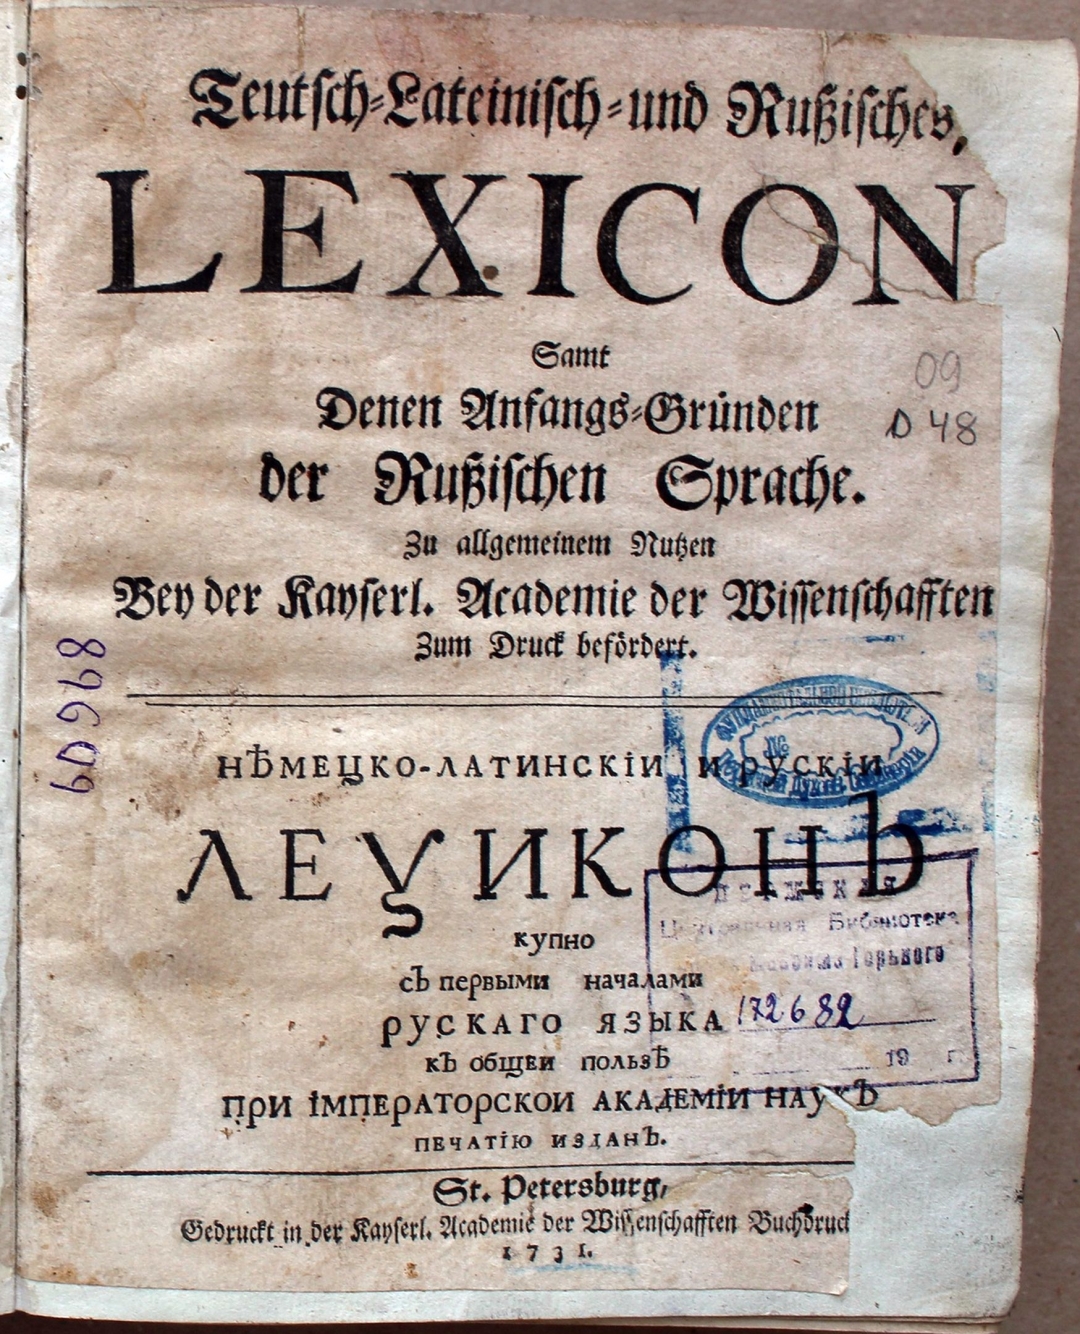 Teutſch-Lateiniſch-und Rußiſches,
LEXICON
Samt
Denen Anfangs-Gründen
der Rußiſchen Sprache.
Zu allgemeinem Nutzen
Bey der Kayſerl. Academie der Wiſſenſchafften
Zum Druck befördert.
09
D 48
60968
НѢМЕЦКО-ЛАТИНСКІИ И РУСКІИ
ЛЕѮИКОНЪ
КУПНО
СЪ ПЕРВЫМИ НАЧАЛАМИ
РУСКАГО ЯЗЫКА
КЪ ОБЩЕИ ПОЛЬЗѢ
ПРИ ІМПЕРАТОРСКОИ АКАДЕМІИ НАУКЪ
ПЕЧАТІЮ ИЗДАНЪ.
Центральная Библиотека
Горького
172682
19 г.
St. Petersburg,
Gedruckt in der Kayſerl. Academie der Wiſſenſchafften Buchdruck
1731.